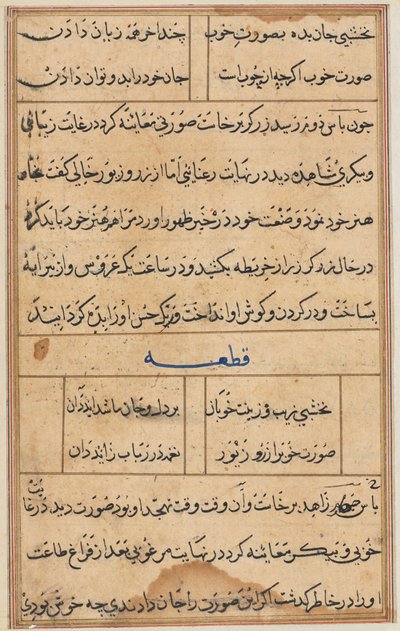 نخشبی جان بده بصورت خوب چند اخر همه زبان دادن
صورت خوب اکرچه از چوب است جان خود را بدو توان دادن
چون پاس دوم رسید زرکر برخاست صورتی معاینه کرد در غایت زیبایی
و پیکری مشاهده دید در نهایت رعنائی اما از زر و زیور خالی کفت
هنر خود نمود و صنعت خود در خیر ظهور اورد مرا هم هنر خود باید کرد
در حال زرکر زر از خریطه بکشید و در ساعت یک عروس وار پیرایه
بساخت و در کردن و کوش او انداخت و یک حسن او را بده کردانید
قطعه
نخشبی زیب و زینت خوبان بر دل و جان ما شد اید دان
صورت خوب از زر و زیور نغمه در زیر باب زاید دان
پاس سیم زاهد برخاست و آن وقت وقت تهجد او بود صورت دید در غایت
خوبی و پیکر معاینه کرد در نهایت مرغوبی بعد از فراغ طاعت
او را در خاطر کذشت اکر این صورت را جان دادندی چه خوش بودی